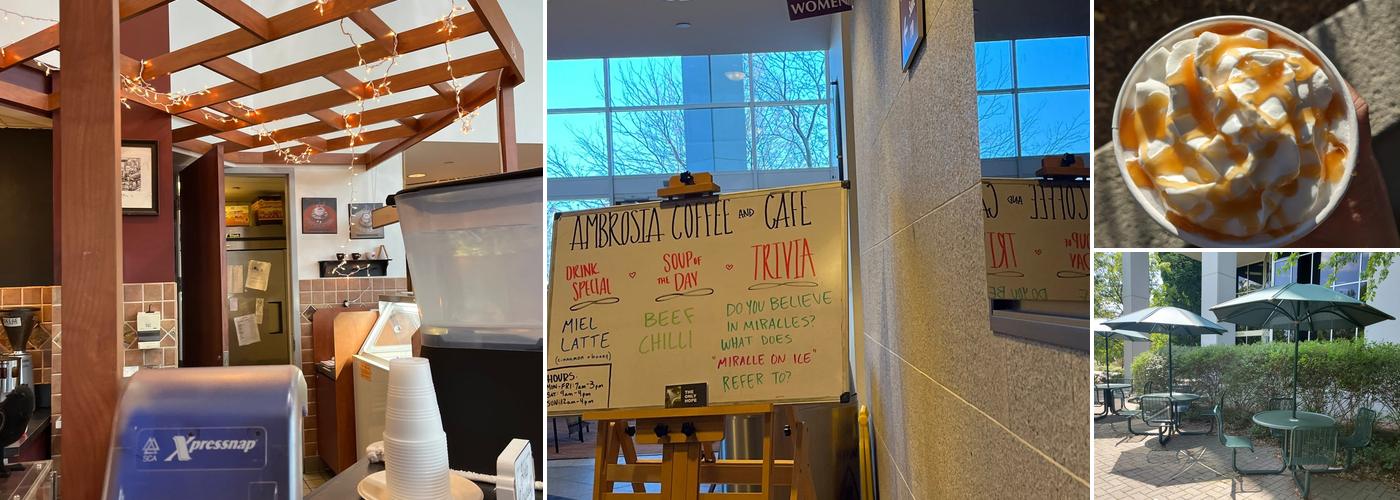 SCA
Xpressnap
WOMEN
AMBROSIA COFFEE AND CAFE
DRINK
SPECIAL
SOUP OF
THE DAY
TRIVIA
MIEL
LATTE
(cinnamon + honey)
BEEF
CHILLI
DO YOU BELIEVE
IN MIRACLES?
WHAT DOES
"MIRACLE ON ICE"
REFER TO?
HOURS:
MON-FRI: 7am-3pm
THE
ONLY
HOPE